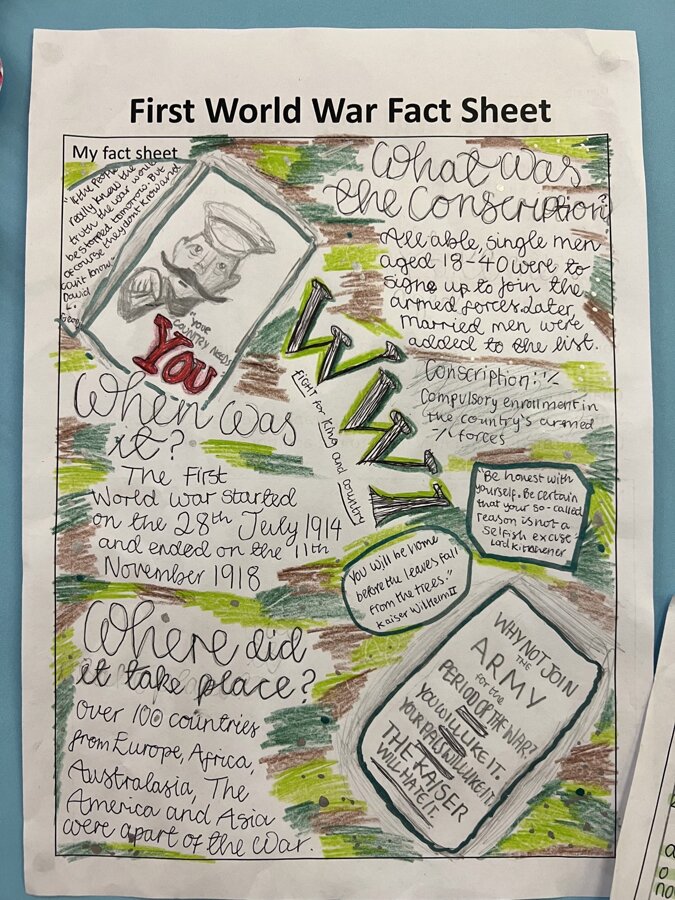 First World War Fact Sheet
My fact sheet
"If the people
really knew the
truth the war would
be stopped tomorrow. But
of course they don't know and
can't know."
David
L.
"YOUR
COUNTRY NEEDS
YOU
What was
the Conscription?
All able, single men
aged 18-40 were to
signs up to join the
armed forces. Later
married men were
added to the list.
Conscription:
Compulsory enrollment in
the country's armed
forces
WWI
FIGHT for King and country
When was
it?
The First
World war started
on the 28th July 1914
and ended on the 11th
November 1918
"Be honest with
yourself. Be certain
that your so-called
reason is not a
selfish excuse
Lord Kitchener
You will be home
before the leaves fall
from the trees."
Kaiser Wilhelm II
Where did
it take place?
Over 100 countries
from Europe, Africa,
Australasia, The
America and Asia
were apart of the war.
WHY NOT JOIN
THE
ARMY
for the
PERIOD OF THE WAR?
YOU WILL LIKE IT.
YOUR PALS WILL LIKE IT.
THE KAISER
WILL HATE IT.